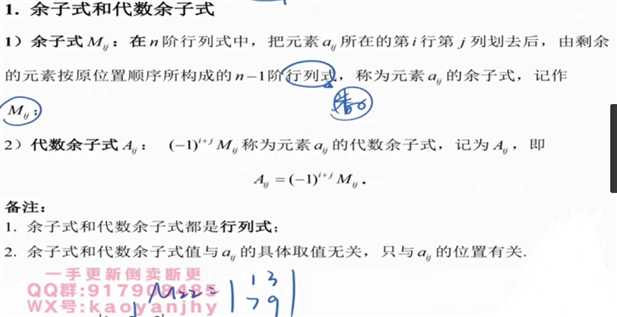 1. 余子式和代数余子式
1）余子式 Mᵢⱼ：在 n 阶行列式中，把元素 aᵢⱼ 所在的第 i 行第 j 列划去后，由剩余
的元素按原位置顺序所构成的 n−1 阶行列式，称为元素 aᵢⱼ 的余子式，记作
Mᵢⱼ；
2）代数余子式 Aᵢⱼ： (−1)ⁱ⁺ʲ Mᵢⱼ 称为元素 aᵢⱼ 的代数余子式，记为 Aᵢⱼ，即
Aᵢⱼ = (−1)ⁱ⁺ʲ Mᵢⱼ．
备注：
1. 余子式和代数余子式都是行列式；
2. 余子式和代数余子式值与 aᵢⱼ 的具体取值无关，只与 aᵢⱼ 的位置有关．
一手更新倒卖断更
QQ群:917908485
M22 = | 1 3
7 9 |
WX号:kaoyanjhy